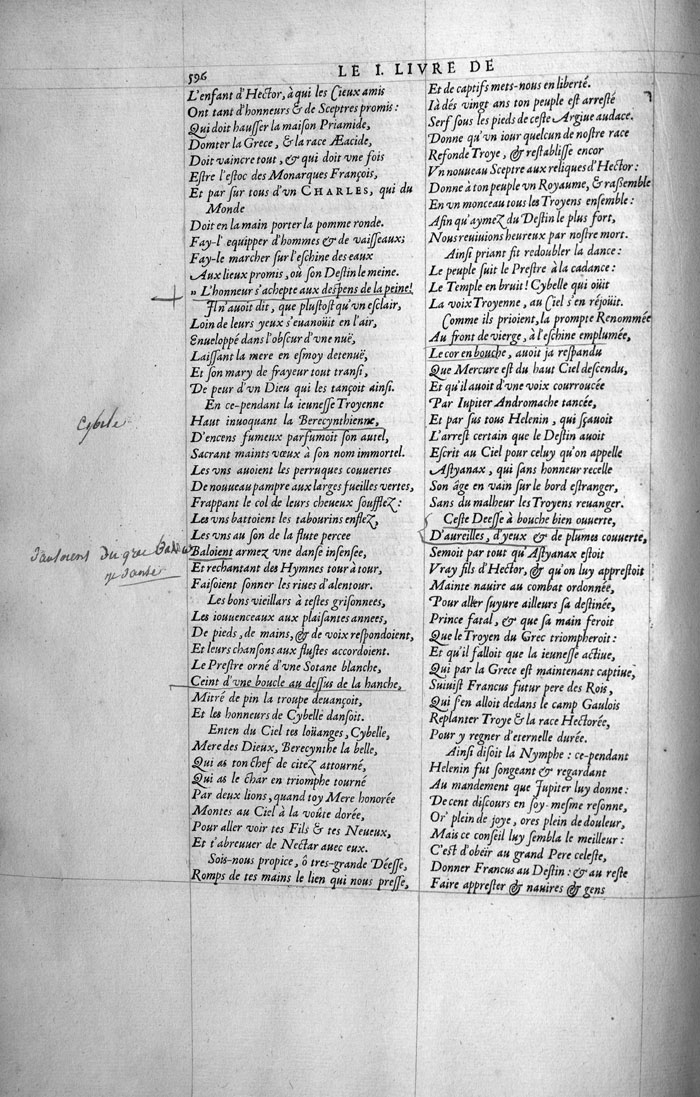 596
LE I. LIVRE DE
L'enfant d'Hector, à qui les Cieux amis
Ont tant d'honneurs & de Sceptres promis:
Qui doit hausser la maison Priamide,
Domter la Grece, & la race Æacide,
Doit vaincre tout, & qui doit vne fois
Estre l'estoc des Monarques François,
Et par sur tous d'vn CHARLES, qui du
Monde
Doit en la main porter la pomme ronde.
Fay-l' equipper d'hommes & de vaisseaux;
Fay-le marcher sur l'eschine des eaux
Aux lieux promis, où son Destin le meine.
» L'honneur s'achepte aux despens de la peine!
Il n'auoit dit, que plustost qu'vn esclair,
Loin de leurs yeux s'euanoüit en l'air,
Enueloppé dans l'obscur d'vne nuë,
Laissant la mere en esmoy detenuë,
Et son mary de frayeur tout transi,
De peur d'vn Dieu qui les tançoit ainsi.
En ce-pendant la ieunesse Troyenne
Haut inuoquant la Berecynthienne,
Cybele
D'encens fumeux parfumoit son autel,
Sacrant maints vœux à son nom immortel.
Les vns auoient les perruques couuertes
De nouueau pampre aux larges fueilles vertes,
Frappant le col de leurs cheueux soufflez:
Les vns battoient les tabourins enflez,
Les vns au son de la flute percee
Baloient armez vne danse insensee,
Et rechantant des Hymnes tour à tour,
Faisoient sonner les riues d'alentour.
Les bons vieillars à testes grisonnees,
Les iouuenceaux aux plaisantes annees,
De pieds, de mains, & de voix respondoient,
Et leurs chansons aux flustes accordoient.
Le Prestre orné d'vne Sotane blanche,
Ceint d'vne boucle au dessus de la hanche,
Mitré de pin la troupe deuançoit,
Et les honneurs de Cybelle dansoit.
Enten du Ciel tes loüanges, Cybelle,
Mere des Dieux, Berecynthe la belle,
Qui as ton chef de citez attourné,
Qui as le char en triomphe tourné
Par deux lions, quand toy Mere honorée
Montes au Ciel à la voûte dorée,
Pour aller voir tes Fils & tes Neueux,
Et t'abreuuer de Nectar auec eux.
Sois-nous propice, ô tres-grande Déesse,
Romps de tes mains le lien qui nous presse,
Et de captifs mets-nous en liberté.
Ià dés vingt ans ton peuple est arresté
Serf sous les pieds de ceste Argiue audace.
Donne qu'vn iour quelcun de nostre race
Refonde Troye, & restablisse encor
Vn nouueau Sceptre aux reliques d'Hector:
Donne à ton peuple vn Royaume, & rassemble
En vn monceau tous les Troyens ensemble:
Afin qu'aymez du Destin le plus fort,
Nous reuiuions heureux par nostre mort.
Ainsi priant fit redoubler la dance:
Le peuple suit le Prestre à la cadance:
Le Temple en bruit! Cybelle qui oüit
La voix Troyenne, au Ciel s'en réjoüit.
Comme ils prioient, la prompte Renommée
Au front de vierge, à l'eschine emplumée,
Le cor en bouche, auoit ja respandu
Que Mercure est du haut Ciel descendu,
Et qu'il auoit d'vne voix courroucée
Par Iupiter Andromache tancée,
Et par sus tous Helenin, qui sçauoit
L'arrest certain que le Destin auoit
Escrit au Ciel pour celuy qu'on appelle
Astyanax, qui sans honneur recelle
Son âge en vain sur le bord estranger,
Sans du malheur les Troyens reuanger.
Ceste Deesse à bouche bien ouuerte,
D'aureilles, d'yeux & de plumes couuerte,
Semoit par tout qu'Astyanax estoit
Vray fils d'Hector, & qu'on luy apprestoit
Mainte nauire au combat ordonnée,
Pour aller suyure ailleurs sa destinée,
Prince fatal, & que sa main feroit
Que le Troyen du Grec triompheroit:
Et qu'il falloit que la ieunesse actiue,
Qui par la Grece est maintenant captiue,
Suiuist Francus futur pere des Rois,
Qui s'en alloit dedans le camp Gaulois
Replanter Troye & la race Hectorée,
Pour y regner d'eternelle durée.
Ainsi disoit la Nymphe: ce-pendant
Helenin fut songeant & regardant
Au mandement que Jupiter luy donne:
De cent discours en soy-mesme resonne,
Or' plein de joye, ores plein de douleur,
Mais ce conseil luy sembla le meilleur:
C'est d'obeïr au grand Pere celeste,
Donner Francus au Destin: & au reste
Faire apprester & nauires & gens